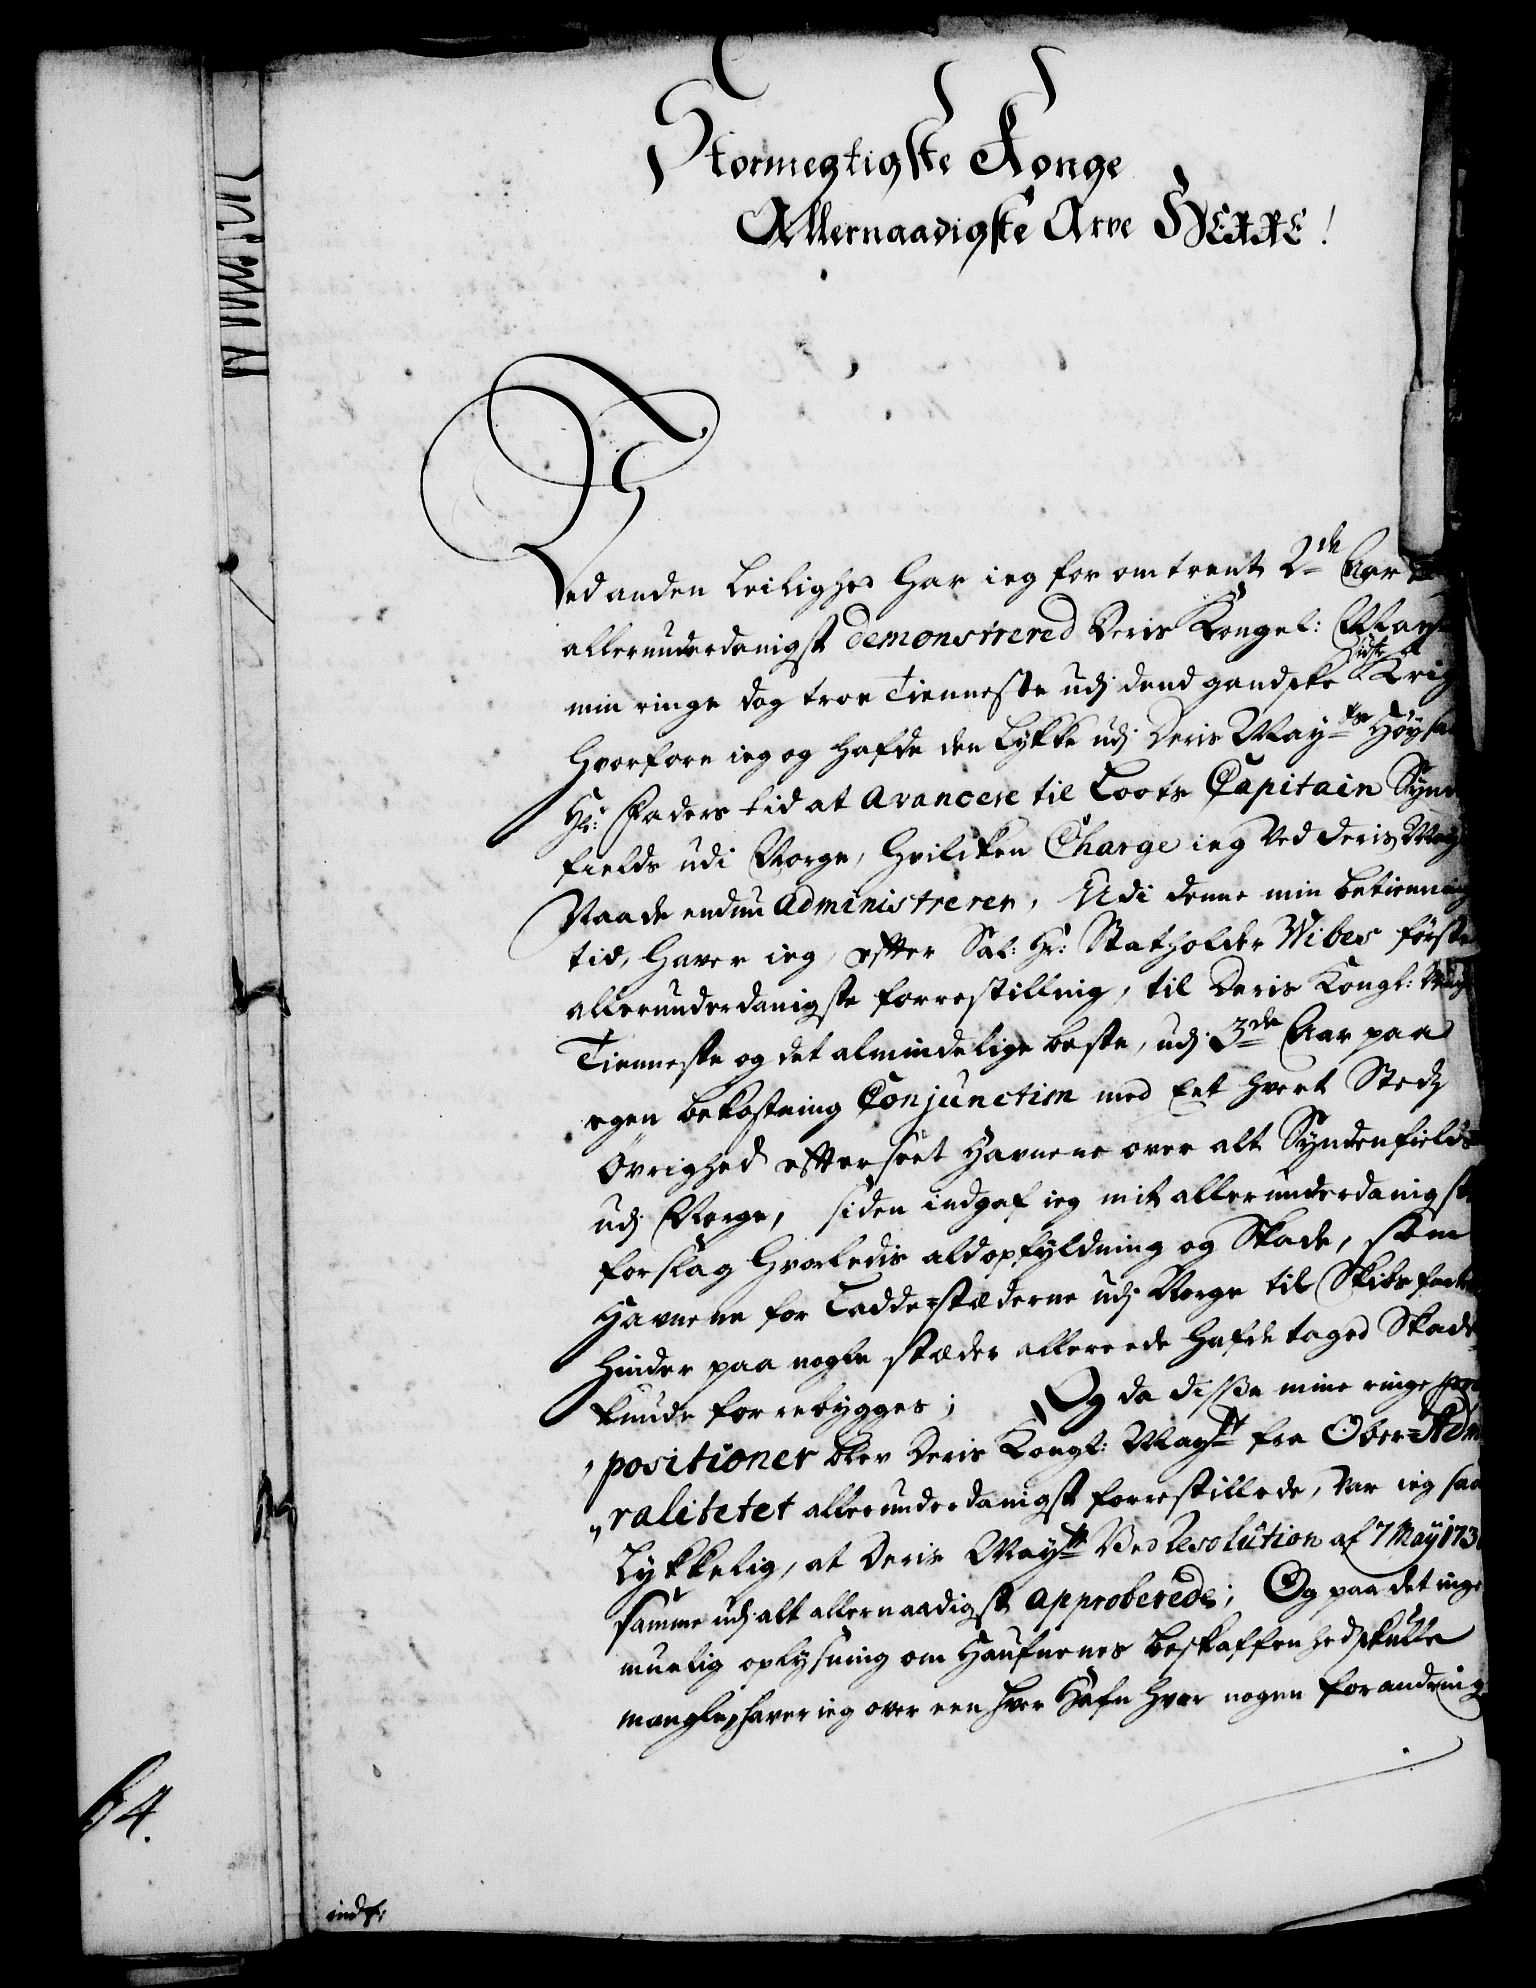 Stormegtigste Konge
Allernaadigste Arve HERRE!
Ved anden Leilighed har ieg for omtrent 2de Aar
allerunderdanigst demonstrered Deris Kongel: May
min ringe dog troe Tienneste udj dend gandske sidste Krig
hvorfore ieg og hafde den Lykke udj Deris Mayts Høysal
Hr: Faders tid at avancere til Loots Capitain Synden
fields udi Norge, hvilcken Charge ieg ved Deris May
Naade endnu administrerer, Udi denne min betienning
tid, haver ieg, efter Sal: Hr: Statholder Wibes første
allerunderdanigste forrestilling, til Deris Kongl: May
Tienneste og det almindelige beste, udj 3de Aar paa
egen bekostning Conjunctim med Eet hvert Stedz
Øvrighed efterseet Havnene over alt Syndenfields
udj Norge, siden indgaf ieg mit allerunderdanigste
forslag hvorledis ald opfyldning og Skade, som
Havnene for Ladde-stæderne udj Norge til Skibsfarten
hinder paa nogle stæder allereede hafde taged Skade
kunde forrebygges; Og da disse mine ringe
positioner blev Deris Kongl: Maytt fra Ober-Admi
ralitetet allerunderdanigst forrestillede, var ieg saa
Lykkelig, at Deris Maytt Ved Resolution af 7 May 173
samme udj alt allernaadigst approberede; Og paa det ingen
muelig oplysning om Haufnenes beskaffenhed skulle
mangle, haver ieg over een hver Hafn hvor nogen forandring
64.
indk: